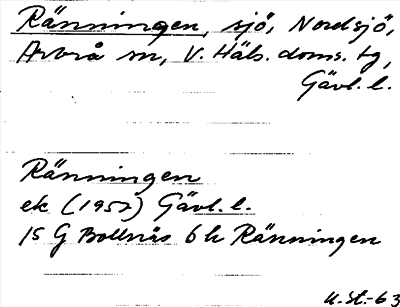 Ränningen, sjö, Nordsjö,
Arbrå sn, V. Häls. doms. tg,
Gävl. l.
Ränningen
ek (1957) Gävl. l.
15 G Bollnäs 6 h Ränningen
U.St.-63